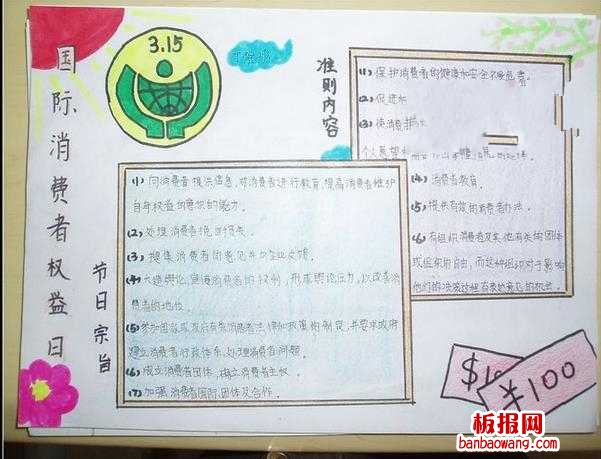 国际消费者权益日
3.15
准则内容
(1) 保护消费者的健康和安全不受危害。
(2) 促进和
(3) 使消费者
(4) 消费者教育。
(5) 提供有效的消费者办法。
(6) 有组织消费者及其他有关的团体
或组织的自由,而这种组织对于影响
他们的决策过程有表达意见的机会。
节日宗旨
(1) 向消费者提供信息,对消费者进行教育,提高消费者维护
自身权益的意识和能力。
(2) 处理消费者
(3) 搜集消费者的意见并向企业反馈。
(4) 大造舆论,宣传消费者的权利,形成舆论压力,以改善消
费者的地位。
(5) 参加国家或政府有关消费者法律和政策的制定,并要求政府
建立消费者行政体系,处理消费者问题。
(6) 成立消费者团体,确立消费者主权。
(7) 加强消费者国际团体及合作。
¥100
板报网
banbaowang.com